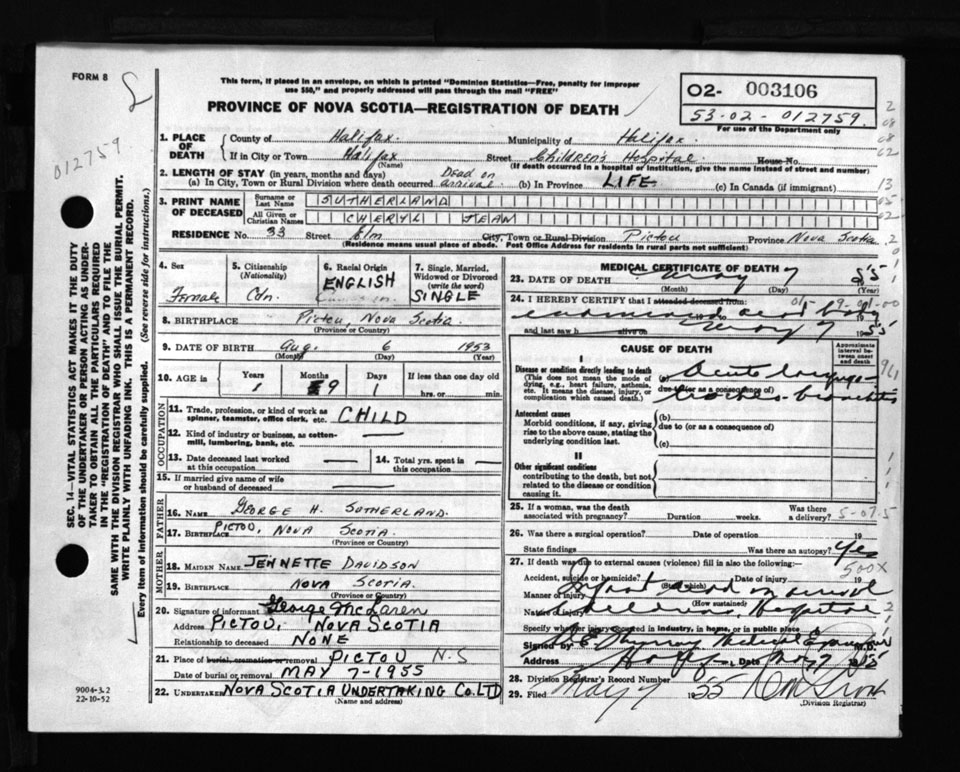 FORM 8
This form, if placed in an envelope, on which is printed "Dominion Statistics—Free, penalty for improper
use $50," and properly addressed will pass through the mail "FREE"
PROVINCE OF NOVA SCOTIA—REGISTRATION OF DEATH
02- 003106
53-02-012759
For use of the Department only
012759
SEC. 14—VITAL STATISTICS ACT MAKES IT THE DUTY
OF THE UNDERTAKER OR PERSON ACTING AS UNDER-
TAKER TO OBTAIN ALL THE PARTICULARS REQUIRED
IN THE "REGISTRATION OF DEATH" AND TO FILE THE
SAME WITH THE DIVISION REGISTRAR WHO SHALL ISSUE THE BURIAL PERMIT.
WRITE PLAINLY WITH UNFADING INK. THIS IS A PERMANENT RECORD.
Every item of information should be carefully supplied. (See reverse side for instructions.)
1. PLACE OF DEATH County of Halifax. Municipality of Halifax.
If in City or Town Halifax Street Children's Hospital House No.
(Name) (If death occurred in a hospital or institution, give the name instead of street and number)
2. LENGTH OF STAY (in years, months and days)
(a) In City, Town or Rural Division where death occurred Dead on arrival (b) In Province LIFE (c) In Canada (if immigrant)
3. PRINT NAME OF DECEASED Surname or Last Name SUTHERLAND
All Given or Christian Names CHERYL JEAN
RESIDENCE No. 33 Street Elm City, Town or Rural Division Pictou Province Nova Scotia
(Residence means usual place of abode. Post Office Address for residents in rural parts not sufficient)
4. Sex Female
5. Citizenship (Nationality) Cdn.
6. Racial Origin ENGLISH
7. Single, Married, Widowed or Divorced (write the word) SINGLE
8. BIRTHPLACE Pictou, Nova Scotia.
(Province or Country)
9. DATE OF BIRTH Aug. 6 1953
(Month) (Day) (Year)
10. AGE in Years 1 Months 9 Days 1 If less than one day old
hrs. or min.
OCCUPATION
11. Trade, profession, or kind of work as spinner, teamster, office clerk, etc. CHILD
12. Kind of industry or business, as cotton-mill, lumbering, bank, etc.
13. Date deceased last worked at this occupation
14. Total yrs. spent in this occupation
15. If married give name of wife or husband of deceased
FATHER
16. NAME GEORGE H. SUTHERLAND.
17. BIRTHPLACE PICTOU, NOVA SCOTIA.
(Province or Country)
MOTHER
18. MAIDEN NAME JENNETTE DAVIDSON
19. BIRTHPLACE NOVA SCOTIA.
(Province or Country)
20. Signature of informant George McLaren
Address PICTOU, NOVA SCOTIA
Relationship to deceased NONE
21. Place of burial, cremation or removal PICTOU N.S
Date of burial or removal MAY 7-1955
22. UNDERTAKER NOVA SCOTIA UNDERTAKING CO. LTD
(Name and address)
9004-3.2
22-10-52
MEDICAL CERTIFICATE OF DEATH
23. DATE OF DEATH May 7 55
(Month) (Day) (Year)
24. I HEREBY CERTIFY that I attended deceased from:
examined dead body
and last saw h alive on May 7 1955
CAUSE OF DEATH
Approximate interval between onset and death
I
Disease or condition directly leading to death
(This does not mean the mode of dying, e.g., heart failure, asthenia, etc. It means the disease, injury, or complication which caused death.)
(a) Acute laryngo-
due to (or as a consequence of)
tracheo-bronchitis
Antecedent causes
Morbid conditions, if any, giving rise to the above cause, stating the underlying condition last.
(b)
due to (or as a consequence of)
(c)
II
Other significant conditions
contributing to the death, but not related to the disease or condition causing it.
25. If a woman, was the death associated with pregnancy? Duration weeks. Was there a delivery?
26. Was there a surgical operation? Date of operation 19
State findings Was there an autopsy? Yes
27. If death was due to external causes (violence) fill in also the following:—
500X
Accident, suicide or homicide? (State which) Date of injury 19
Manner of injury Infant dead on arrival
(How sustained)
Nature of injury Childrens Hospital
Specify whether injury occurred in industry, in home, or in public place
Signed by Medical Examiner M.D.
Address Halifax Date May 7 1955
28. Division Registrar's Record Number
29. Filed May 7 1955
(Division Registrar)